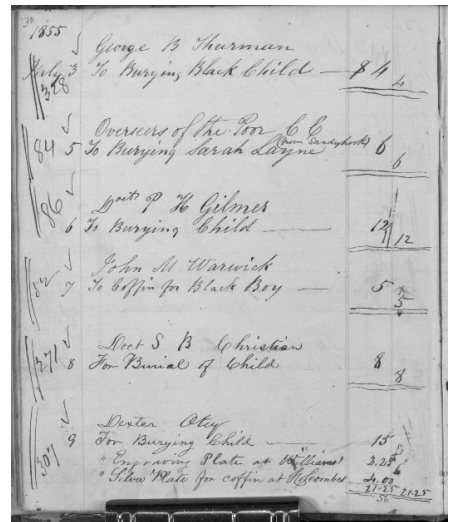 30
1855
George B Thurman
July 3 To Burying Black Child — $ 4
328 4
Overseers of the Poor C C
84 5 To Burying Sarah Layne (from Sandyhook) 6
6
86 Doct P H Gilmer
6 To Burying Child — 12
12
John M Warwick
52 7 To Coffin for Black Boy — 5
5
Doct S B Christian
271 8 For Burial of Child 8
8
Dexter Otey
307 9 For Burying Child — 15
" Engraving Plate at Williams' 2.25
" Silver Plate for coffin at 4.00
21.25 21.25
50